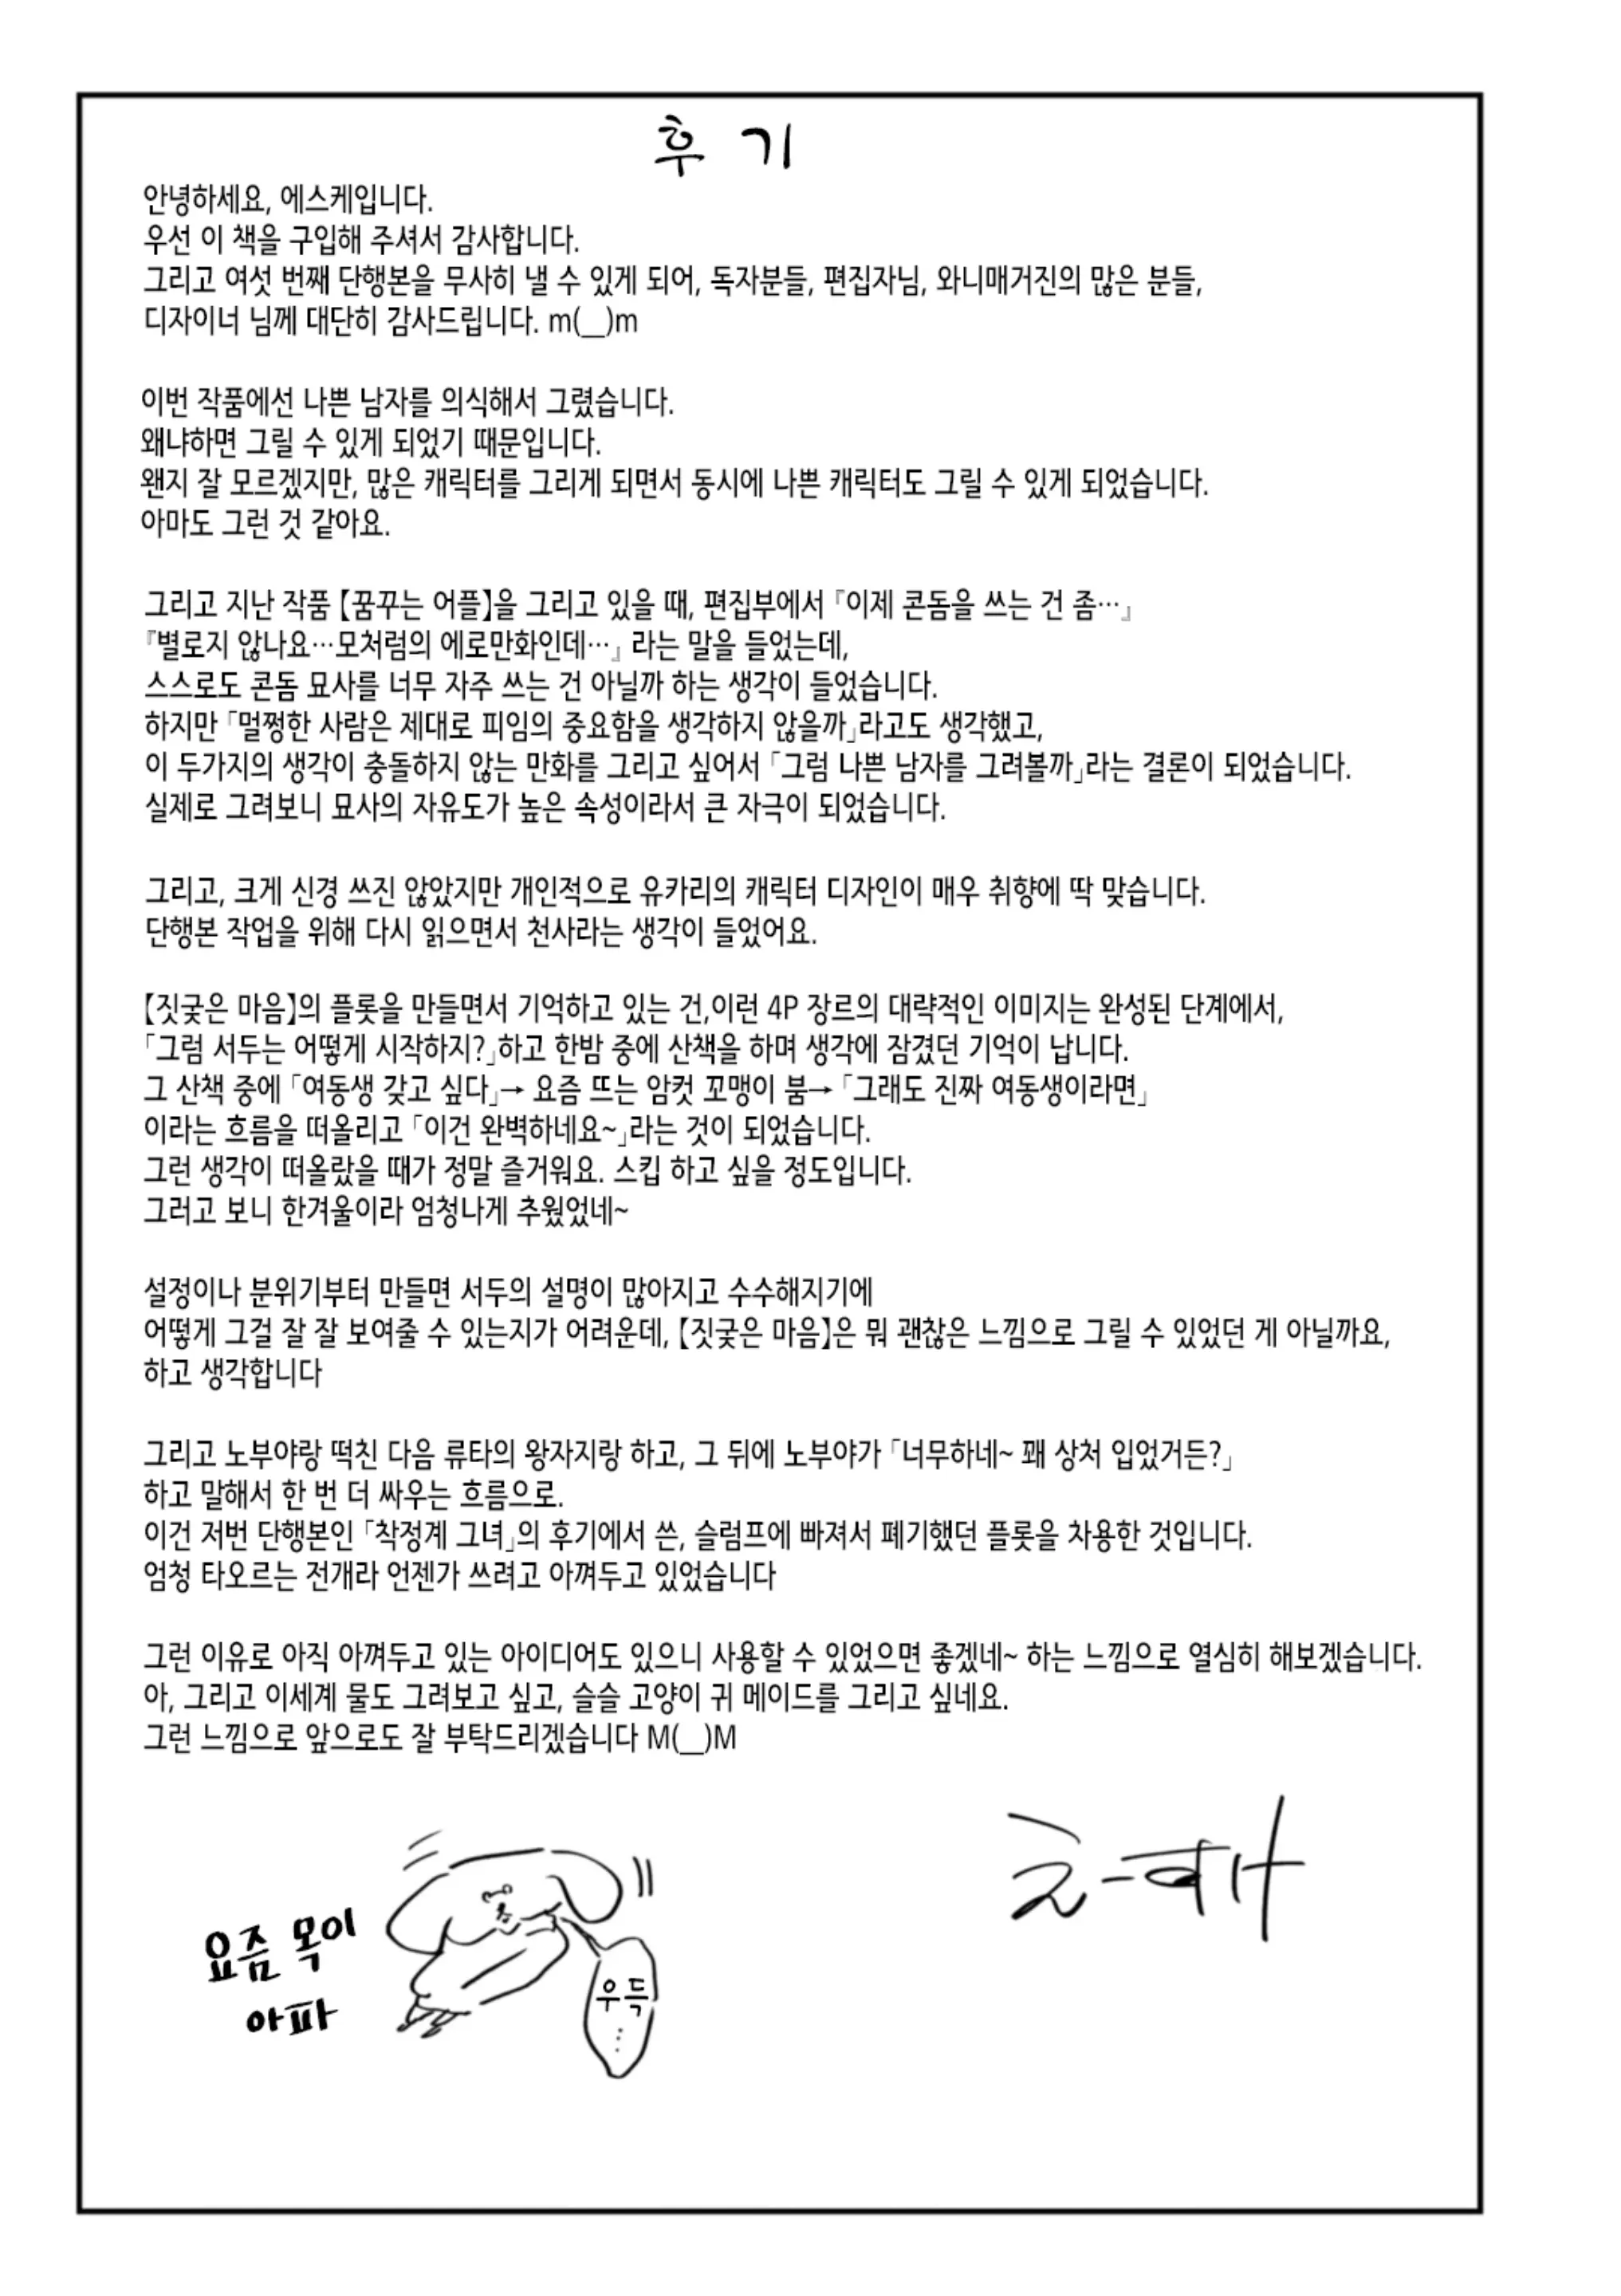 후 기
안녕하세요, 에스케입니다.
우선 이 책을 구입해 주셔서 감사합니다.
그리고 여섯 번째 단행본을 무사히 낼 수 있게 되어, 독자분들, 편집자님, 와니매거진의 많은 분들,
디자이너 님께 대단히 감사드립니다. m(__)m
이번 작품에선 나쁜 남자를 의식해서 그렸습니다.
왜냐하면 그릴 수 있게 되었기 때문입니다.
왠지 잘 모르겠지만, 많은 캐릭터를 그리게 되면서 동시에 나쁜 캐릭터도 그릴 수 있게 되었습니다.
아마도 그런 것 같아요.
그리고 지난 작품【꿈꾸는 어플】을 그리고 있을 때, 편집부에서『이제 콘돔을 쓰는 건 좀…』
『별로지 않나요…모처럼의 에로만화인데…』라는 말을 들었는데,
스스로도 콘돔 묘사를 너무 자주 쓰는 건 아닐까 하는 생각이 들었습니다.
하지만「멀쩡한 사람은 제대로 피임의 중요함을 생각하지 않을까」라고도 생각했고,
이 두가지의 생각이 충돌하지 않는 만화를 그리고 싶어서「그럼 나쁜 남자를 그려볼까」라는 결론이 되었습니다.
실제로 그려보니 묘사의 자유도가 높은 속성이라서 큰 자극이 되었습니다.
그리고, 크게 신경 쓰진 않았지만 개인적으로 유카리의 캐릭터 디자인이 매우 취향에 딱 맞습니다.
단행본 작업을 위해 다시 읽으면서 천사라는 생각이 들었어요.
【짓궂은 마음】의 플롯을 만들면서 기억하고 있는 건,이런 4P 장르의 대략적인 이미지는 완성된 단계에서,
「그럼 서두는 어떻게 시작하지?」하고 한밤 중에 산책을 하며 생각에 잠겼던 기억이 납니다.
그 산책 중에「여동생 갖고 싶다」→ 요즘 뜨는 암컷 꼬맹이 붐→「그래도 진짜 여동생이라면」
이라는 흐름을 떠올리고「이건 완벽하네요~」라는 것이 되었습니다.
그런 생각이 떠올랐을 때가 정말 즐거워요. 스킵 하고 싶을 정도입니다.
그러고 보니 한겨울이라 엄청나게 추웠었네~
설정이나 분위기부터 만들면 서두의 설명이 많아지고 수수해지기에
어떻게 그걸 잘 잘 보여줄 수 있는지가 어려운데,【짓궂은 마음】은 뭐 괜찮은 느낌으로 그릴 수 있었던 게 아닐까요,
하고 생각합니다
그리고 노부야랑 떡친 다음 류타의 왕자지랑 하고, 그 뒤에 노부야가「너무하네~ 꽤 상처 입었거든?」
하고 말해서 한 번 더 싸우는 흐름으로.
이건 저번 단행본인「착정계 그녀」의 후기에서 쓴, 슬럼프에 빠져서 폐기했던 플롯을 차용한 것입니다.
엄청 타오르는 전개라 언젠가 쓰려고 아껴두고 있었습니다
그런 이유로 아직 아껴두고 있는 아이디어도 있으니 사용할 수 있었으면 좋겠네~ 하는 느낌으로 열심히 해보겠습니다.
아, 그리고 이세계 물도 그려보고 싶고, 슬슬 고양이 귀 메이드를 그리고 싶네요.
그런 느낌으로 앞으로도 잘 부탁드리겠습니다 M(__)M
요즘 목이
아파
우득
…